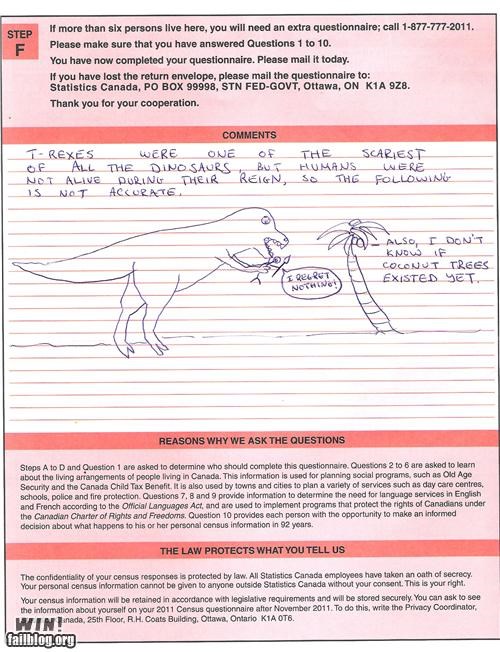 STEP
F
If more than six persons live here, you will need an extra questionnaire; call 1-877-777-2011.
Please make sure that you have answered Questions 1 to 10.
You have now completed your questionnaire. Please mail it today.
If you have lost the return envelope, please mail the questionnaire to:
Statistics Canada, PO BOX 99998, STN FED-GOVT, Ottawa, ON  K1A 9Z8.
Thank you for your cooperation.
COMMENTS
T-REXES WERE ONE OF THE SCARIEST
OF ALL THE DINOSAURS, BUT HUMANS WERE
NOT ALIVE DURING THEIR REIGN, SO THE FOLLOWING
IS NOT ACCURATE.
ALSO, I DON'T
KNOW IF
COCONUT TREES
EXISTED YET.
I REGRET
NOTHING!
REASONS WHY WE ASK THE QUESTIONS
Steps A to D and Question 1 are asked to determine who should complete this questionnaire. Questions 2 to 6 are asked to learn
about the living arrangements of people living in Canada. This information is used for planning social programs, such as Old Age
Security and the Canada Child Tax Benefit. It is also used by towns and cities to plan a variety of services such as day care centres,
schools, police and fire protection. Questions 7, 8 and 9 provide information to determine the need for language services in English
and French according to the Official Languages Act, and are used to implement programs that protect the rights of Canadians under
the Canadian Charter of Rights and Freedoms. Question 10 provides each person with the opportunity to make an informed
decision about what happens to his or her personal census information in 92 years.
THE LAW PROTECTS WHAT YOU TELL US
The confidentiality of your census responses is protected by law. All Statistics Canada employees have taken an oath of secrecy.
Your personal census information cannot be given to anyone outside Statistics Canada without your consent. This is your right.
Your census information will be retained in accordance with legislative requirements and will be stored securely. You can ask to see
the information about yourself on your 2011 Census questionnaire after November 2011. To do this, write the Privacy Coordinator,
25th Floor, R.H. Coats Building, Ottawa, Ontario  K1A 0T6.
WIN!
failblog.org